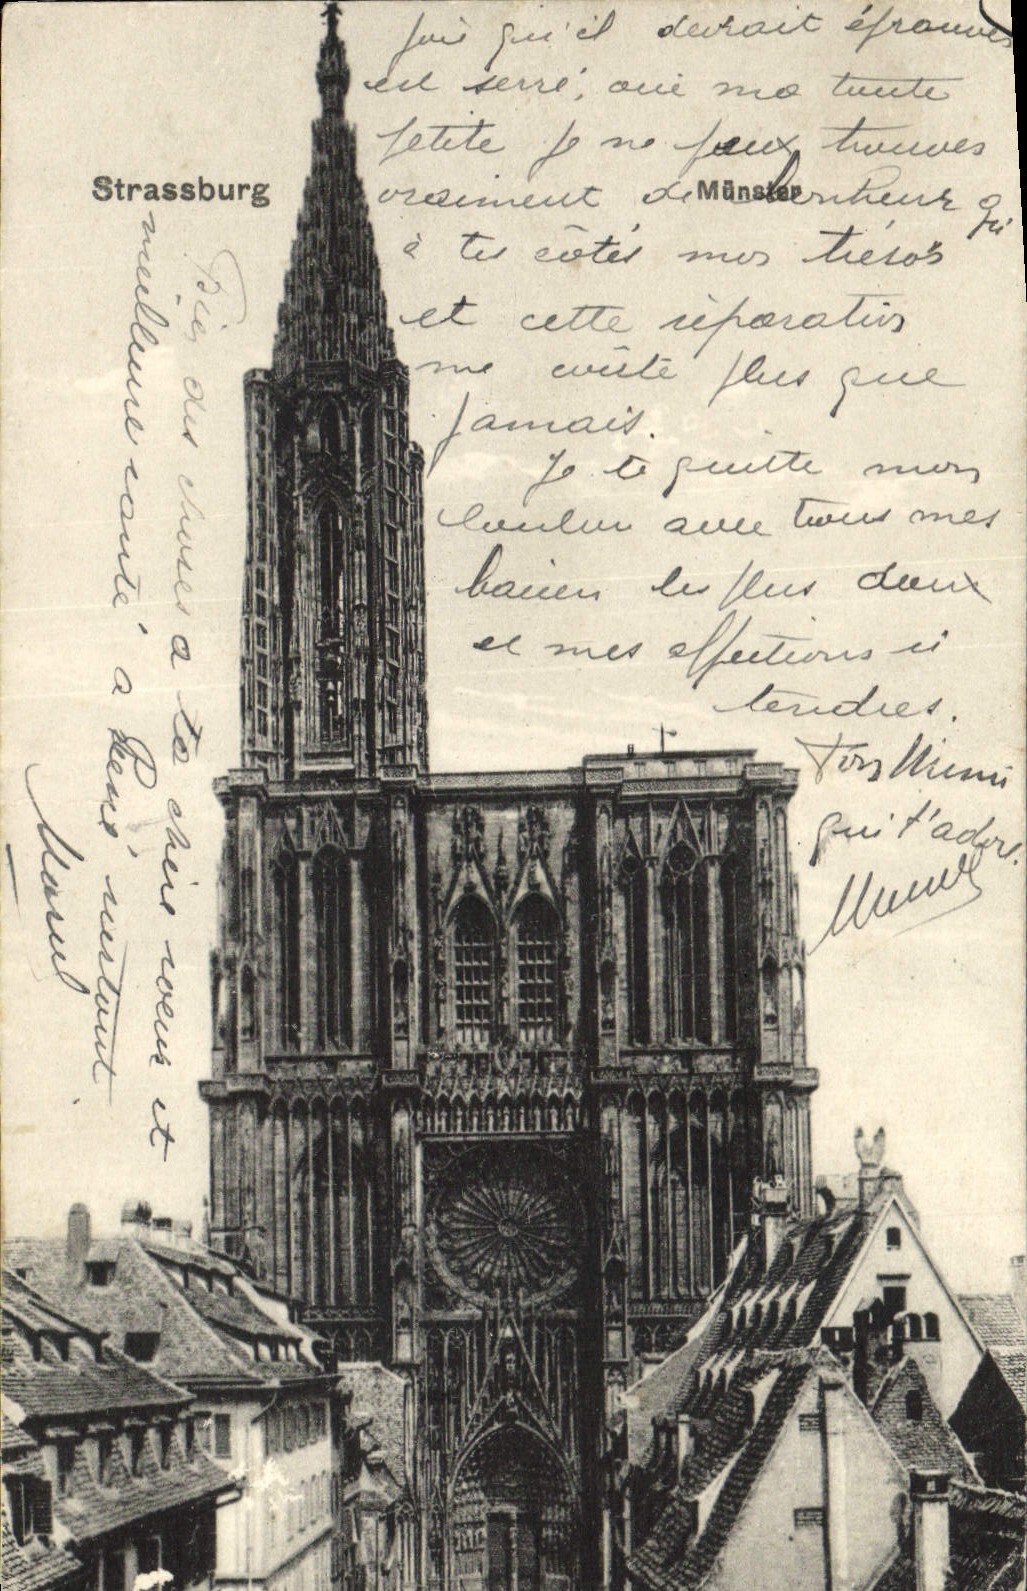 joie qu'il devrait éprouver
est serré, oui ma toute
petite je ne peux trouver
vraiment de bonheur qu'
à tes côtés mon trésor
et cette séparation
me coûte plus que
jamais.
Je te quitte mon
loulou avec tous mes
baisers les plus doux
et mes affections si
tendres.
Ton Mimi
qui t'adore.
Marcel
Strassburg
Münster
Bien des choses a ta chère soeur et
meilleure santé à René surtout.
Marcel